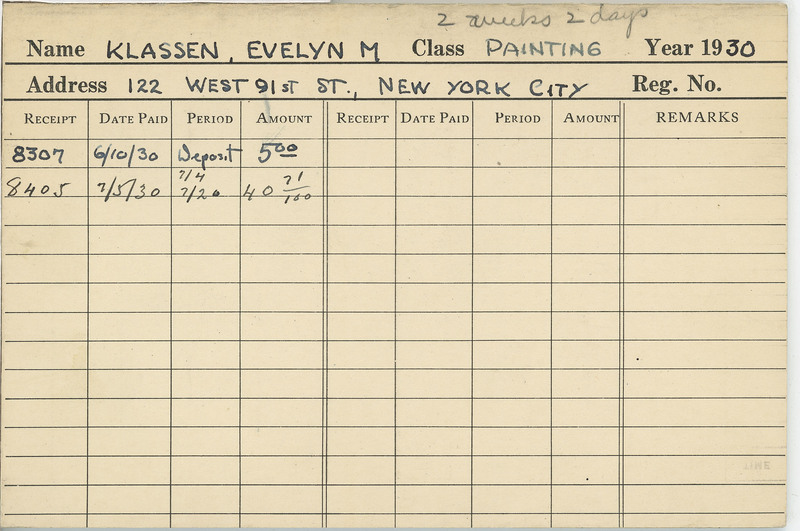 2 weeks 2 days
Name KLASSEN, EVELYN M Class PAINTING Year 1930
Address 122 WEST 91ST ST., NEW YORK CITY Reg. No.
RECEIPT DATE PAID PERIOD AMOUNT RECEIPT DATE PAID PERIOD AMOUNT REMARKS
8307 6/10/30 Deposit 5 00
8405 7/5/30 7/4 7/20 40 71/100